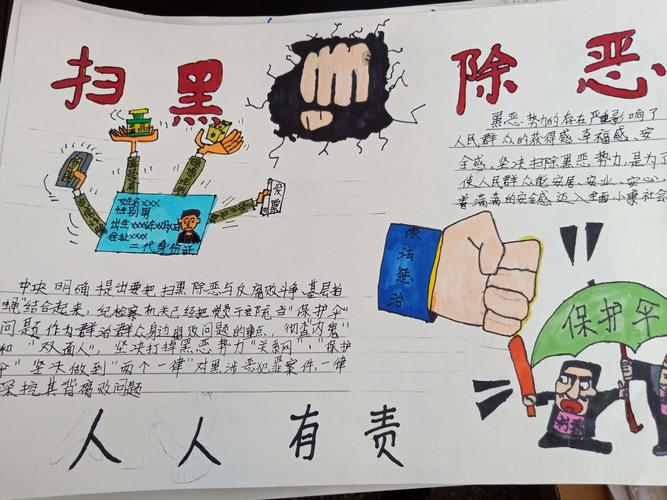 扫黑 除恶
黑恶势力的存在严重影响了
人民群众的获得感、幸福感、安
全感。坚决扫除黑恶势力,是为了
使人民群众能安居、安业、安心
着满满的安全感迈入全面小康社会
发票
姓名xxx
性别男
出生xxx年xx月xx日
住址xxx
二代身份证
依法惩治
保护伞
中央明确提出要把扫黑除恶与反腐败斗争、基层拍
蝇"结合起来,纪检察机关已经把党员干部充当"保护伞"
问题作为群治群众身边腐败问题的重点,彻查"内鬼"
和"双面人",坚决打掉黑恶势力"关系网"、"保护
伞"坚决做到"两个一律"对黑涉恶犯罪案件,一律
深挖其背腐败问题
村霸
人人有责